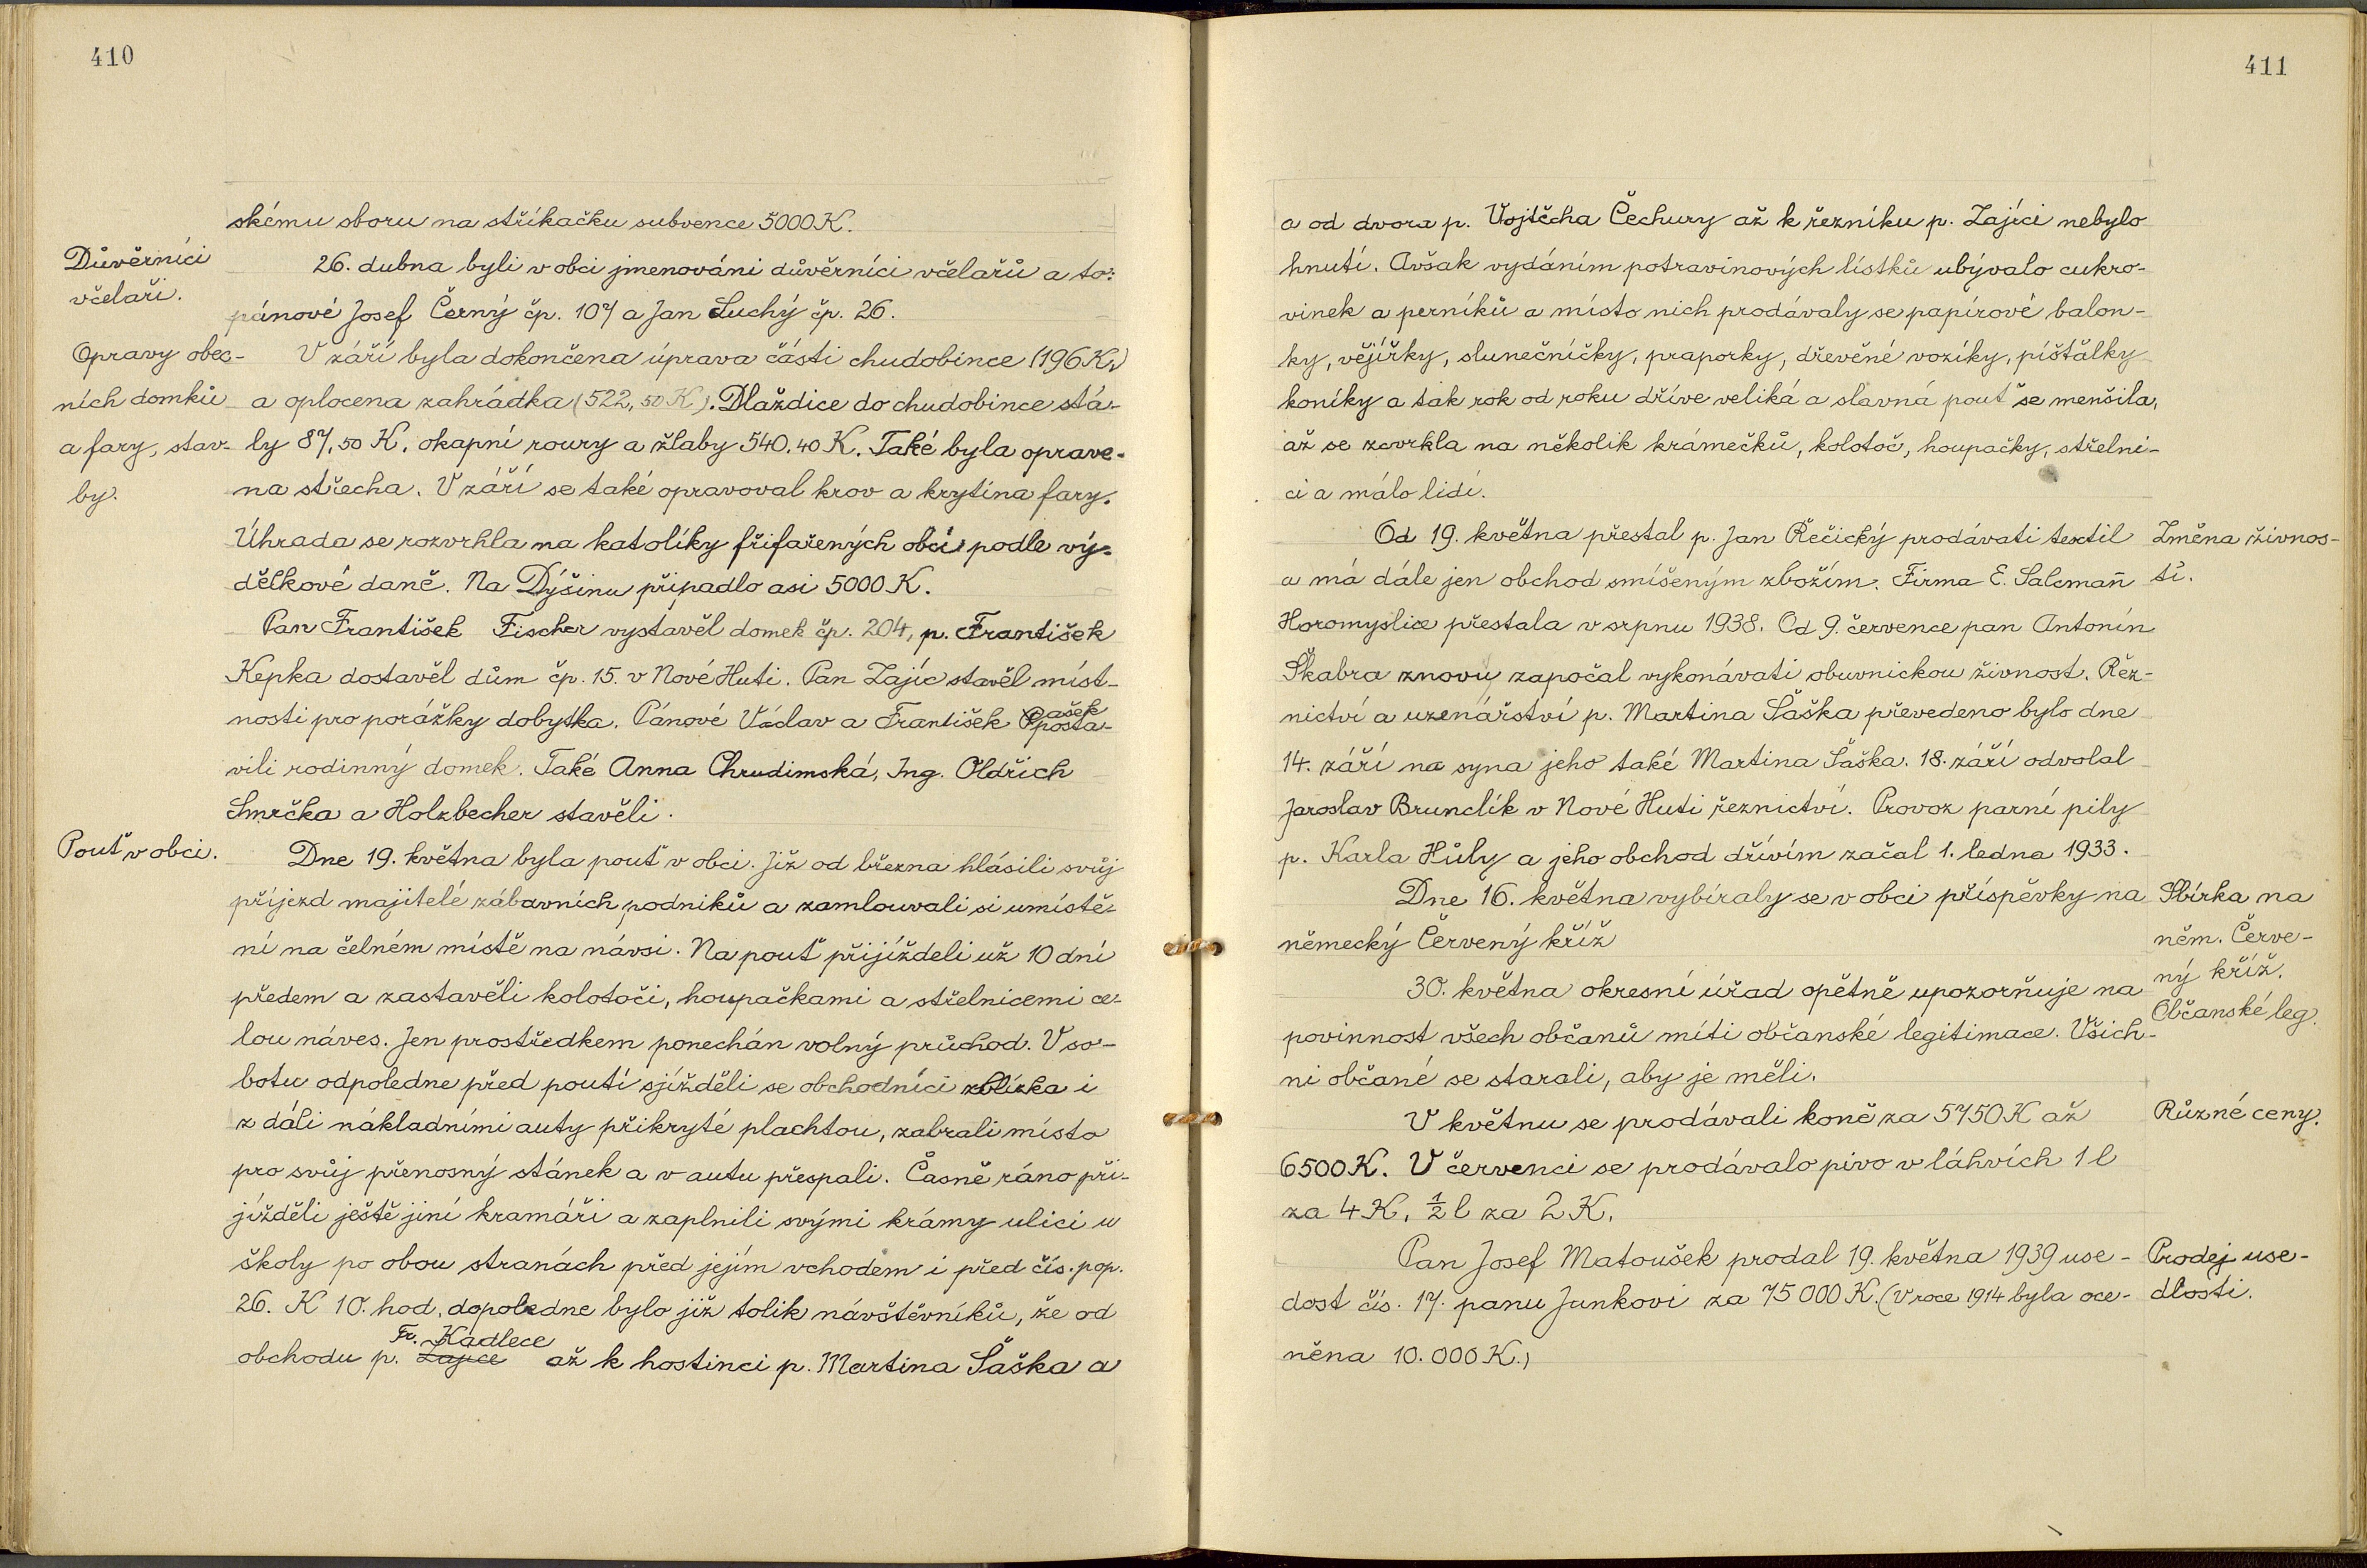 410
skému sboru na stříkačku subvence 5000 K.
Důvěrníci
včelaři.
26. dubna byli v obci jmenováni důvěrníci včelařů a to:
pánové Josef Černý čp. 107 a Jan Suchý čp. 26.
Opravy obec-
ních domků
a fary, stav-
by.
V září byla dokončena úprava části chudobince (196 K)
a oplocena zahrádka (522,50 K). Dlaždice do chudobince stá-
ly 87,50 K, okapní roury a žlaby 540,40 K. Také byla oprave-
na střecha. V září se také opravoval krov a krytina fary.
Úhrada se rozvrhla na katolíky přifařených obcí podle vý-
dělkové daně. Na Dýšinu připadlo asi 5000 K.
Pan František Fischer vystavěl domek čp. 204, p. František
Kepka dostavěl dům čp. 15. v Nové Huti. Pan Zajíc stavěl míst-
nosti pro porážky dobytka. Pánové Václav a František Pašek posta-
vili rodinný domek. Také Anna Chrudimská, Ing. Oldřich
Smrčka a Holzbecher stavěli.
Pouť v obci.
Dne 19. května byla pouť v obci. Již od března hlásili svůj
příjezd majitelé zábavních podniků a zamlouvali si umístě-
ní na čelném místě na návsi. Na pouť přijížděli už 10 dní
předem a zastavěli kolotoči, houpačkami a střelnicemi ce-
lou náves. Jen prostředkem ponechán volný průchod. V so-
botu odpoledne před poutí sjížděli se obchodníci zblízka i
z dáli nákladními auty přikryté plachtou, zabrali místo
pro svůj přenosný stánek a v autu přespali. Časně ráno při-
jížděli ještě jiní kramáři a zaplnili svými krámy ulici u
školy po obou stranách před jejím vchodem i před čís. pop.
26. K 10. hod. dopoledne bylo již tolik návštěvníků, že od
obchodu p. Zajíce Fr. Kadlece až k hostinci p. Martina Šaška a
411
a od dvora p. Vojtěcha Čechury až k řezníku p. Zajíci nebylo
hnutí. Avšak vydáním potravinových lístků ubývalo cukro-
vinek a perníků a místo nich prodávaly se papírové balon-
ky, vějířky, slunečníčky, praporky, dřevěné vozíky, píšťalky
koníky a tak rok od roku dříve veliká a slavná pouť se menšila,
až se zcvrkla na několik krámečků, kolotoč, houpačky, střelni-
ci a málo lidí.
Od 19. května přestal p. Jan Řečický prodávati textil
Změna živnos-
tí.
a má dále jen obchod smíšeným zbožím. Firma E. Salcmañ
Horomyslice přestala v srpnu 1938. Od 9. července pan Antonín
Škabra znovu započal vykonávati obuvnickou živnost. Řez-
nictví a uzenářství p. Martina Šaška převedeno bylo dne
14. září na syna jeho také Martina Šaška. 18. září odvolal
Jaroslav Brunclík v Nové Huti řeznictví. Provoz parní pily
p. Karla Hůly a jeho obchod dřívím začal 1. ledna 1933.
Dne 16. května vybíraly se v obci příspěvky na
německý Červený kříž
Sbírka na
něm. Červe-
ný kříž.
30. května okresní úřad opětně upozorňuje na
Občanské leg.
povinnost všech občanů míti občanské legitimace. Všich-
ni občané se starali, aby je měli.
V květnu se prodávali koně za 5750 K až
Různé ceny.
6500 K. V červenci se prodávalo pivo v láhvích 1 l
za 4 K, ½ l za 2 K.
Pan Josef Matoušek prodal 19. května 1939 use-
Prodej use-
dlosti.
dost čís. 17. panu Junkovi za 75 000 K. (V roce 1914 byla oce-
něna 10.000 K.)